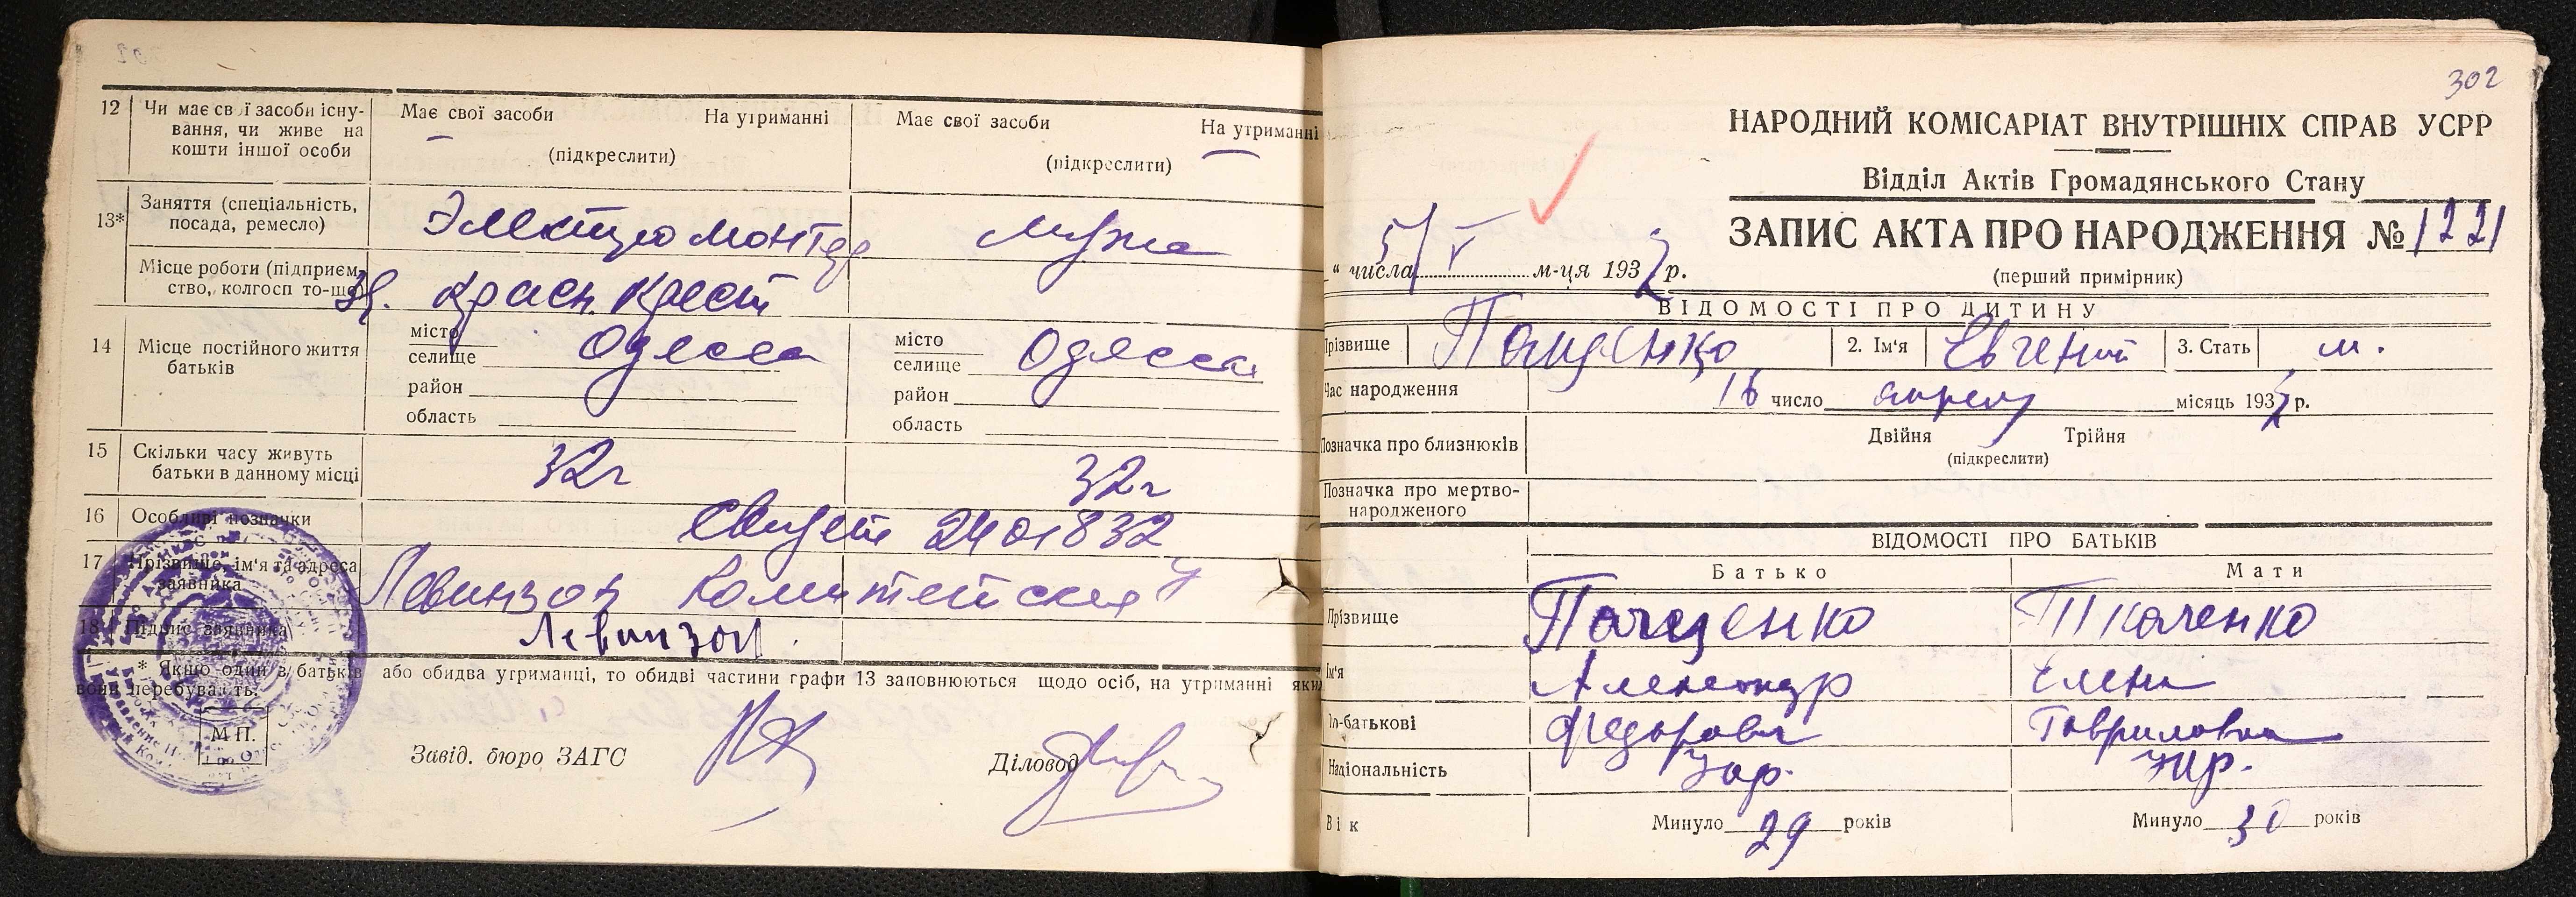 12 Чи має свої засоби існу-
вання, чи живе на
кошти іншої особи
Має свої засоби На утриманні
(підкреслити)
Має свої засоби На утриманні
(підкреслити)
13* Заняття (спеціальність,
посада, ремесло)
Электромонтер
мужа
Місце роботи (підприєм-
ство, колгосп то-що)
Красн. Крест
14 Місце постійного життя
батьків
місто
селище Одесса
район
область
місто
селище Одесса
район
область
15 Скільки часу живуть
батьки в данному місці
32г 32г
16 Особливі позначки
Свидет 2401832
17 Прізвище, ім'я та адреса
заявника
Левинзон
18 Підпис заявника
Левинзон
* Якщо один з батьків або обидва утриманці, то обидві частини графи 13 заповнюються щодо осіб, на утриманні яких
вони перебувають.
М П.
Завід. бюро ЗАГС
Діловод
302
НАРОДНИЙ КОМІСАРІАТ ВНУТРІШНІХ СПРАВ УСРР
Відділ Актів Громадянського Стану
ЗАПИС АКТА ПРО НАРОДЖЕННЯ № 1221
(перший примірник)
5/ " числа V м-ця 1937 р.
ВІДОМОСТІ ПРО ДИТИНУ
Прізвище Пащенко 2. Ім'я Евгений 3. Стать м.
Час народження 16 число апреля місяць 1937 р.
Позначка про близнюків
Двійня Трійня
(підкреслити)
Позначка про мертво-
народженого
ВІДОМОСТІ ПРО БАТЬКІВ
Батько Мати
Прізвище Пащенко Ткаченко
Ім'я Александр Елена
По-батькові Федорович Гавриловна
Національність Укр. Укр.
Вік Минуло 29 років Минуло 30 років